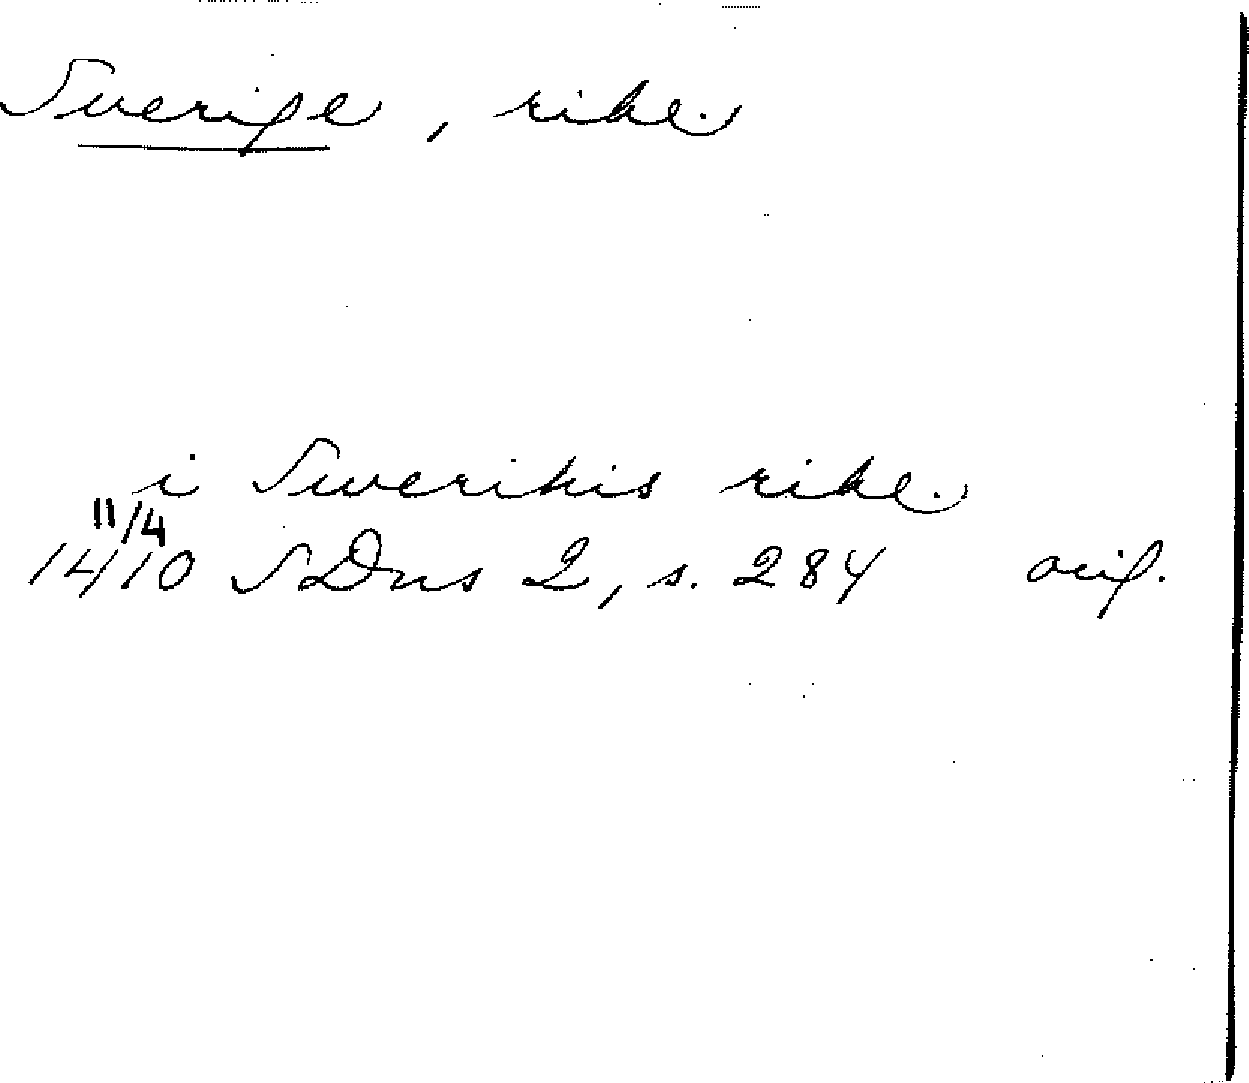 Sverige, rike.
i Swerikis rike.
11/4
1410 SDns 2, s. 284 orig.